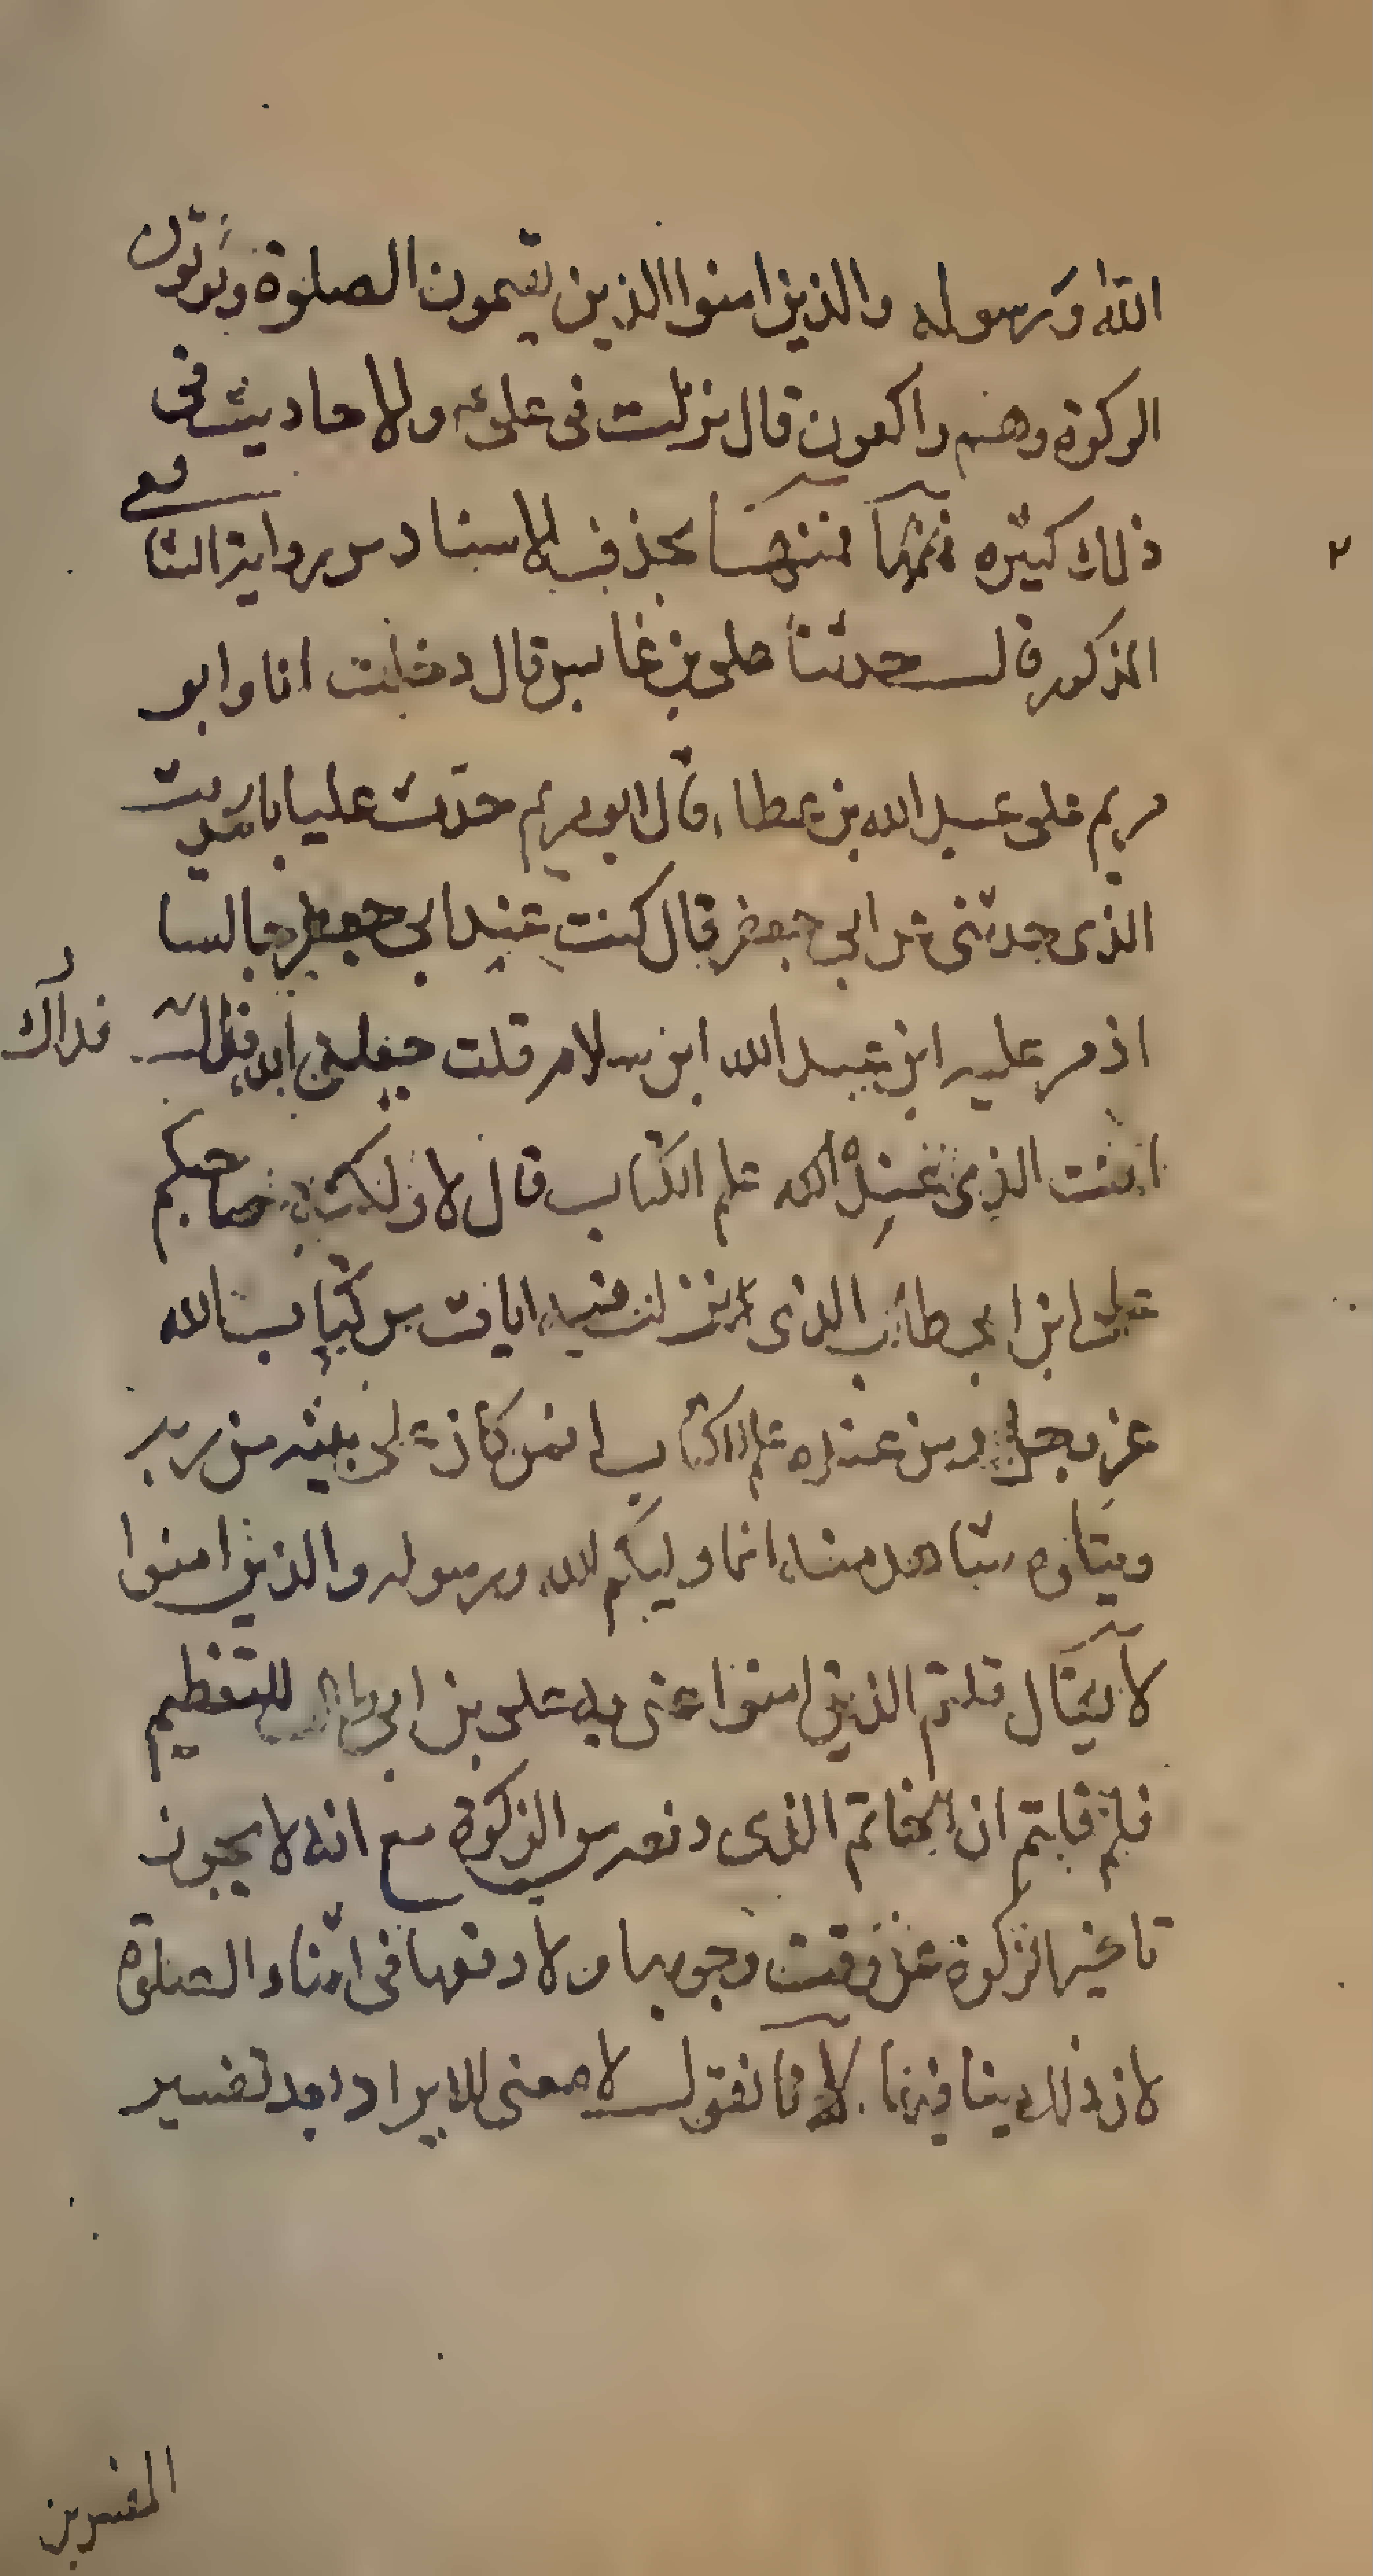 الله ورسوله والذين امنوا الذين يقيمون الصلوة ويؤتون
الزكوة وهم راكعون قال نزلت في علي والاحاديث في
ذلك كثيره فمنها بحذف الاسناد من رواية الشافعي
المذكور قال حدثنا علي بن عابس قال دخلت انا وابو
مريم على عبد الله بن عطاء قال ابو مريم حدث عليا بالحديث
الذي حدثني عن ابي جعفر قال كنت عند ابي جعفر جالسا
اذ مر عليه ابن عبد الله ابن سلام قلت جعلني الله فداك
الذي عنده علم الكتاب قال لا ولكنه صاحبكم
علي ابن ابي طالب الذي نزلت فيه ايات من كتاب الله
عز وجل ومن عنده علم الكتاب افمن كان على بينه من ربه
ويتلوه شاهد منه انما وليكم الله ورسوله والذين امنوا
لا يقال قلتم الذين امنوا عنى به علي بن ابي طالب للتعظيم
فلم قلتم ان الخاتم الذي دفعه من الزكوة مع انه لا يجوز
تاخير الزكوة عن وقت وجوبها ولا دفعها في اثناء الصلوة
لان ذلك ينافيها لانا نقول لا معنى للايراد بعد تفسير
المفسرين